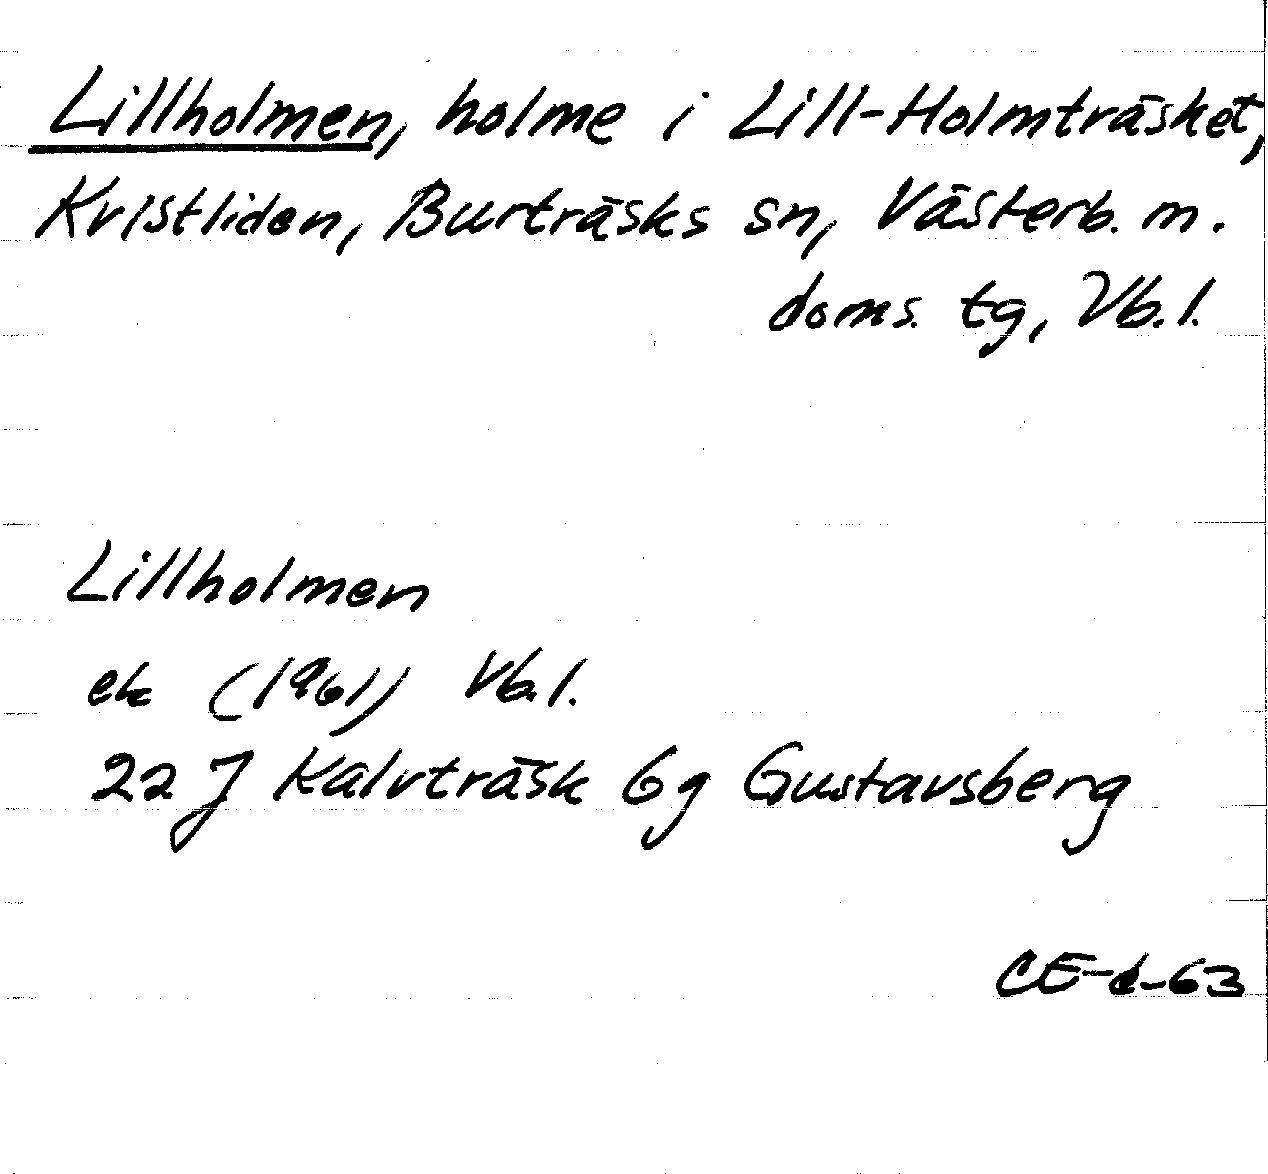 Lillholmen, holme i Lill-Holmträsket,
Kvistliden, Burträsks sn, Västerb. m.
doms. tg, Vb.l.
Lillholmen
ek (1961) Vb.l.
22 J Kalvträsk 6g Gustavsberg
CE-d-63